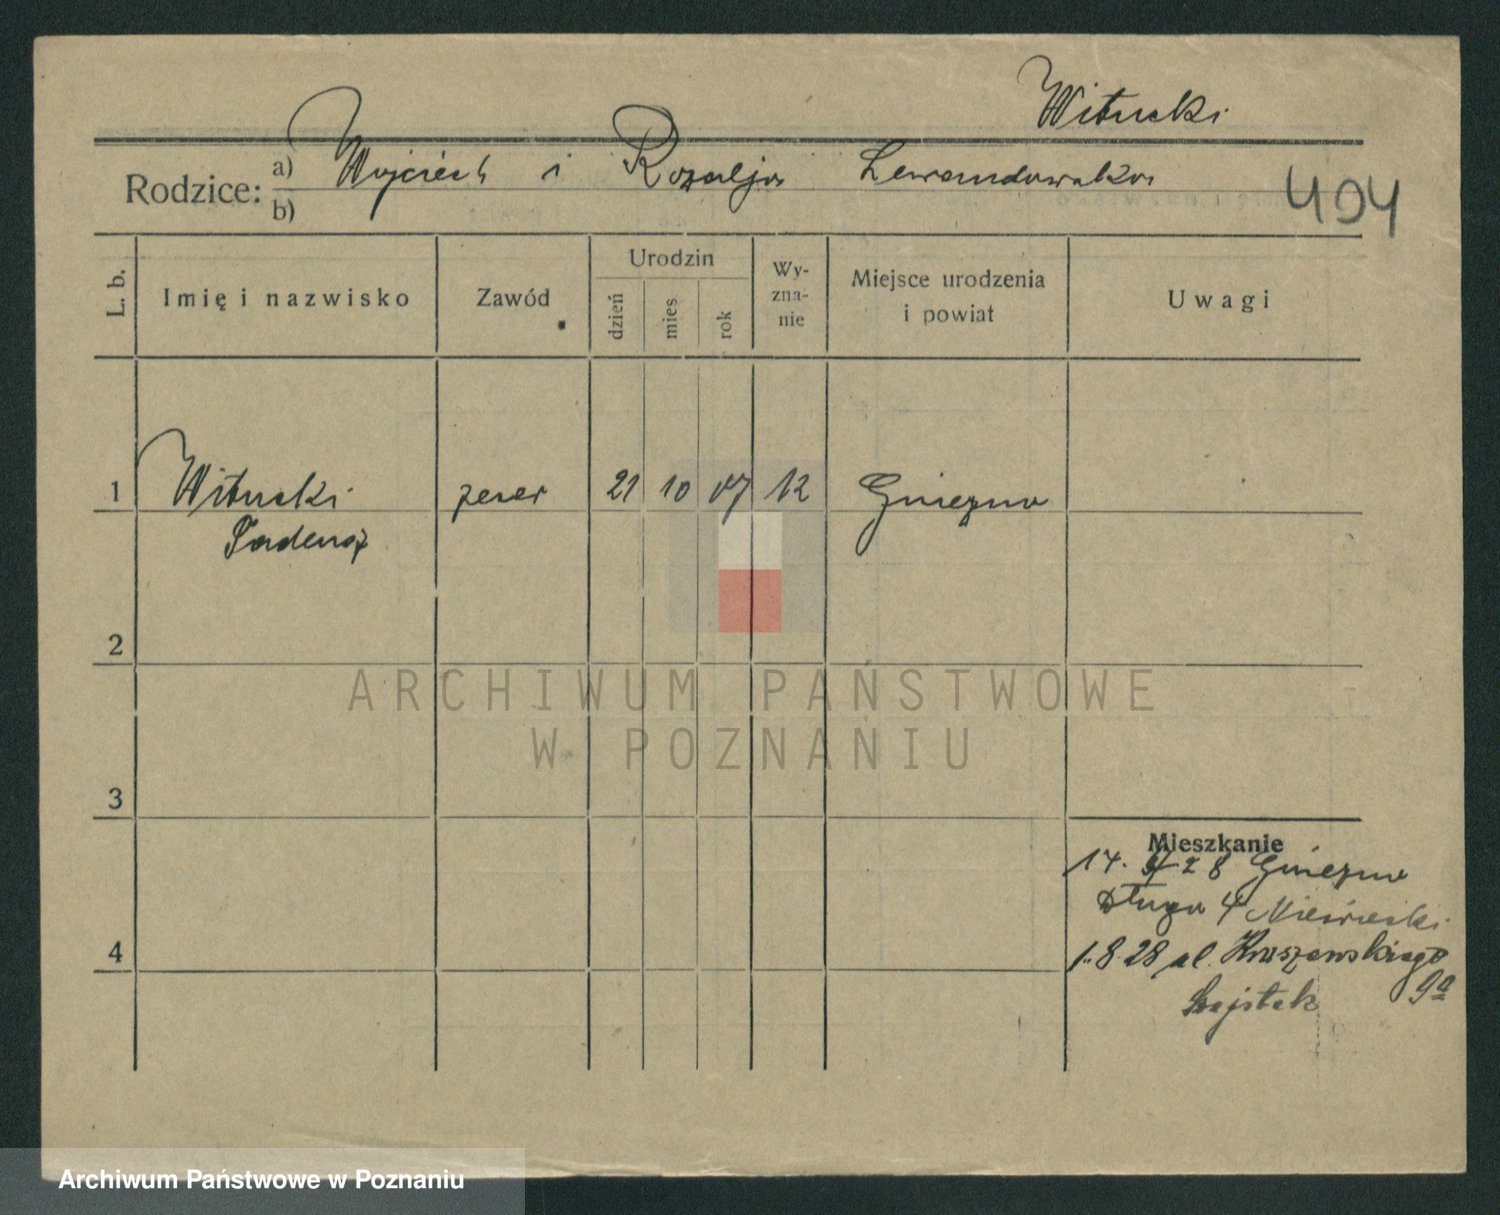 Witucki
Rodzice: a) Wojciech i Rozalja Lewandowska
b)
404
L. b.
Imię i nazwisko
Zawód
Urodzin
dzień
mies
rok
Wy-
zna-
nie
Miejsce urodzenia
i powiat
Uwagi
1 Witucki zecer 21 10 07 K Gniezno
Tadeusz
2
ARCHIWUM PAŃSTWOWE
W POZNANIU
3
Mieszkanie
17. 28 Gniezno
Długa 4
4
1.8.28 ul. Kraszewskiego
9a
Szajstek
Archiwum Państwowe w Poznaniu